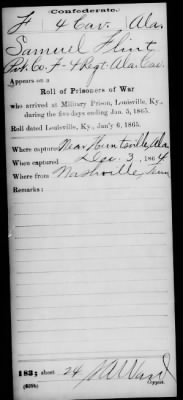 Confederate.
F 4 Cav. Ala.
Samuel Flint
Pvt. Co. F- 4 Regt. Ala. Cav.
Appears on a
Roll of Prisoners of War
who arrived at Military Prison, Louisville, Ky.,
during the five days ending Jan. 5, 1865.
Roll dated Louisville, Ky., Jan'y 6, 1865.
Where captured Near Huntsville, Ala
When captured Dec. 3, 1864
Where from Nashville, Tenn
Remarks:
183; sheet 24
Copyist.